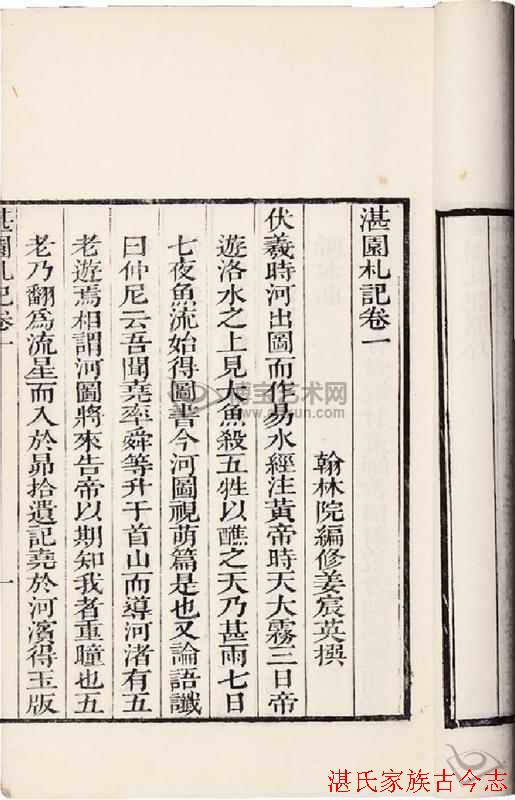 湛園札記卷一
翰林院編修姜宸英撰
伏羲時河出圖而作易水經注黃帝時天大霧三日帝
遊洛水之上見大魚殺五牲以醮之天乃甚雨七日
七夜魚流始得圖書今河圖視萌篇是也又論語讖
曰仲尼云吾聞堯率舜等升于首山而導河渚有五
老遊焉相謂河圖將來告帝以期知我者重瞳也五
老乃翻為流星而入於昴拾遺記堯於河濱得玉版
湛園札記卷一
一
博宝艺术网
湛氏家族古今志